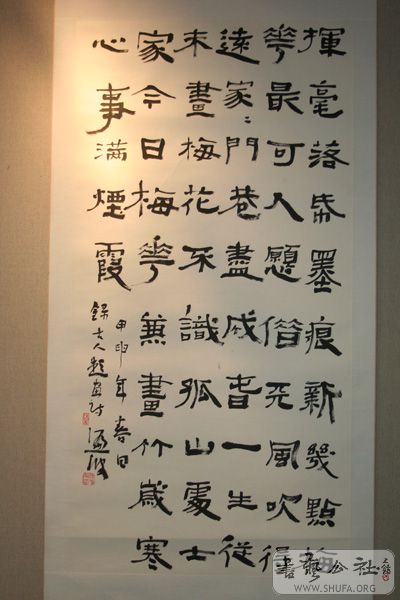 揮毫落帋墨痕新幾點梅
華最可人願借天風吹得
遠家〻門巷盡成春一生從
未畫梅花不識孤山處士
家今日梅華兼畫竹歲寒
心事滿煙霞
甲申年春日
錄古人題畫詩
書藝公社
WWW.SHUFA.ORG